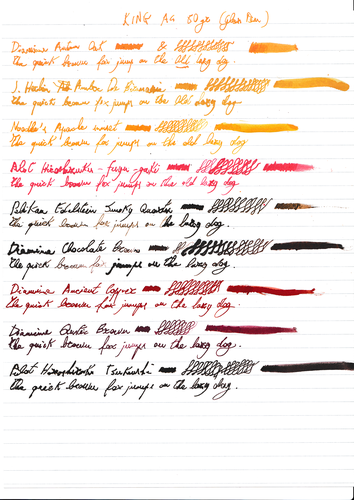 KING AG 50gr (glass Pen)
Diamine Autumn Oak &
the quick brown fox jump on the Old lazy dog.
J. Herbin Ambre De Birmanie
the quick brown fox jumps on the Old lazy dog.
Noodler's Apache sunset
the quick brown fox jumps on the old lazy dog.
Pilot Hiroshizuku - fuyu-gaki
the quick brown fox jumps on the old lazy dog.
Pelikan Edelstein Smoky Quartz
the quick brown fox jumps on the lazy dog.
Diamine Chocolate Brown
the quick brown fox jumps on the lazy dog.
Diamine Ancient Copper
the quick brown fox jumps on the lazy dog.
Diamine Brown
the quick brown fox jumps on the lazy dog.
Pilot Tsukushi
the quick brown fox jumps on the lazy dog.